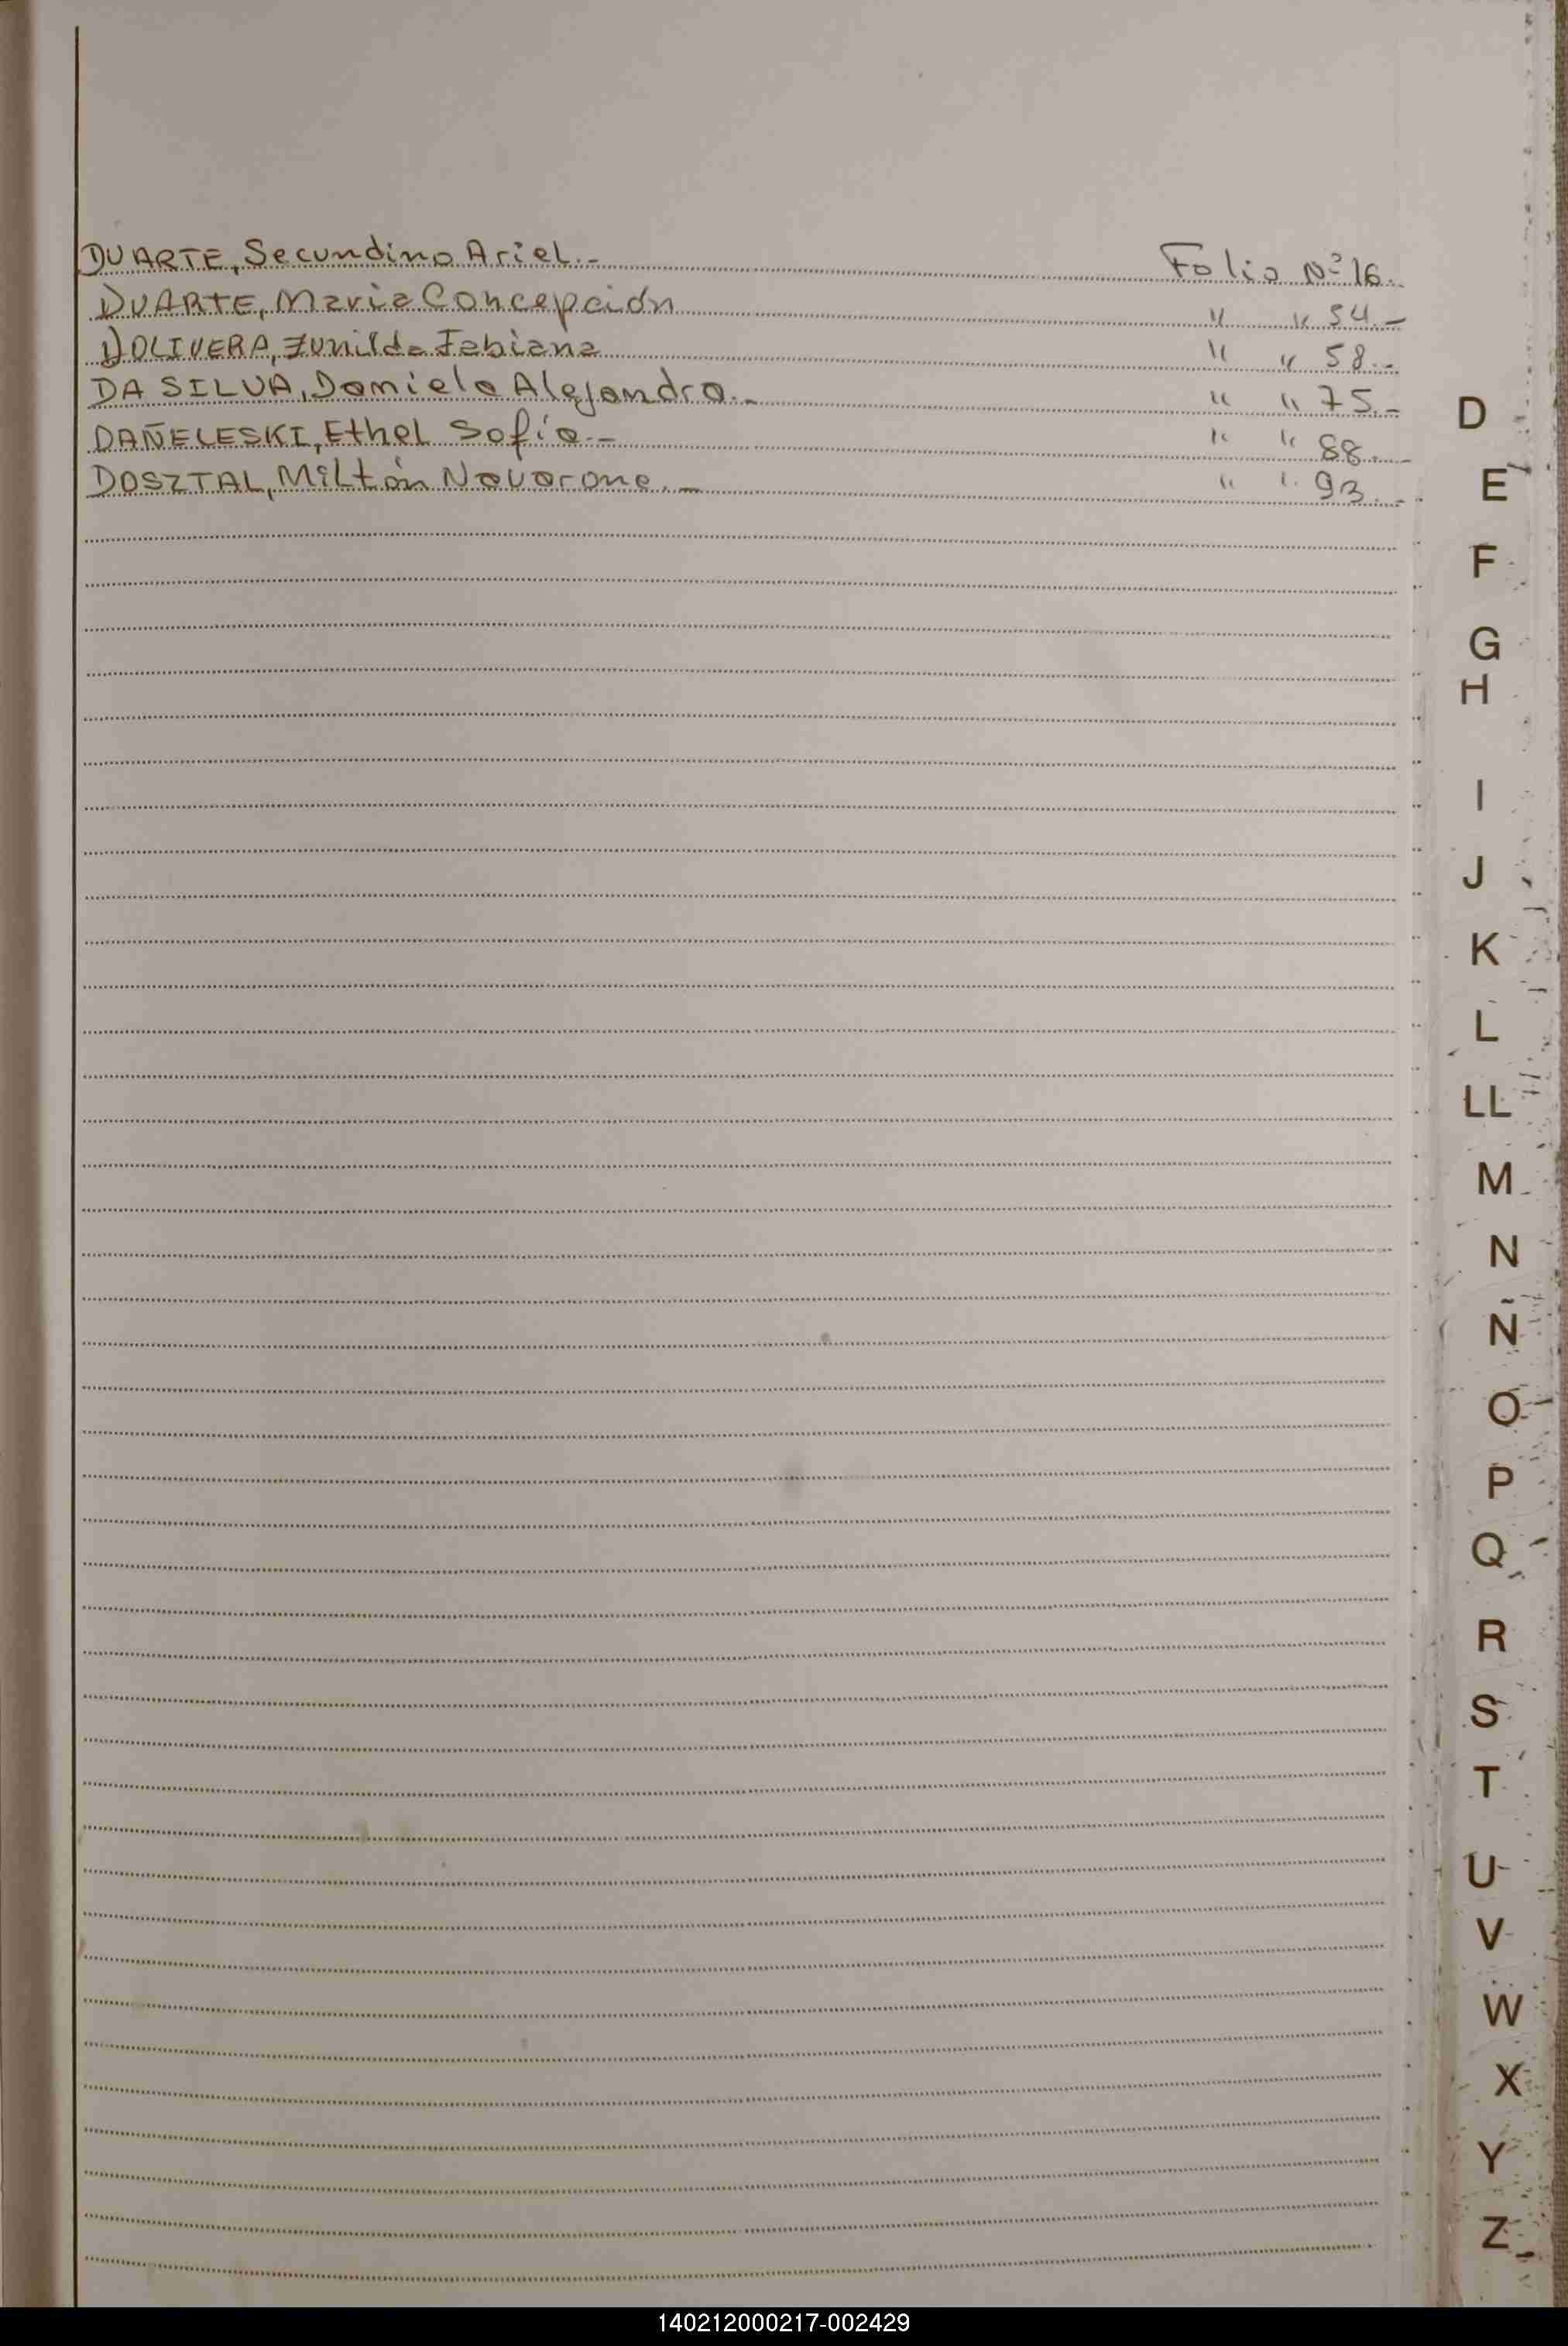 DUARTE, Secundino Ariel.- Folio Nº 16.-
DUARTE, Maria Concepción " " 54.-
DOLIVERA, Zunilda Fabiana " " 58.-
DA SILVA, Daniela Alejandra.- " " 75.-
DAÑELESKI, Ethel Sofía.- " " 88.-
DOSZTAL, Miltón Navarone.- " " 93.-
D
E
F
G
H
I
J
K
L
LL
M
N
Ñ
O
P
Q
R
S
T
U
V
W
X
Y
Z
140212000217-002429